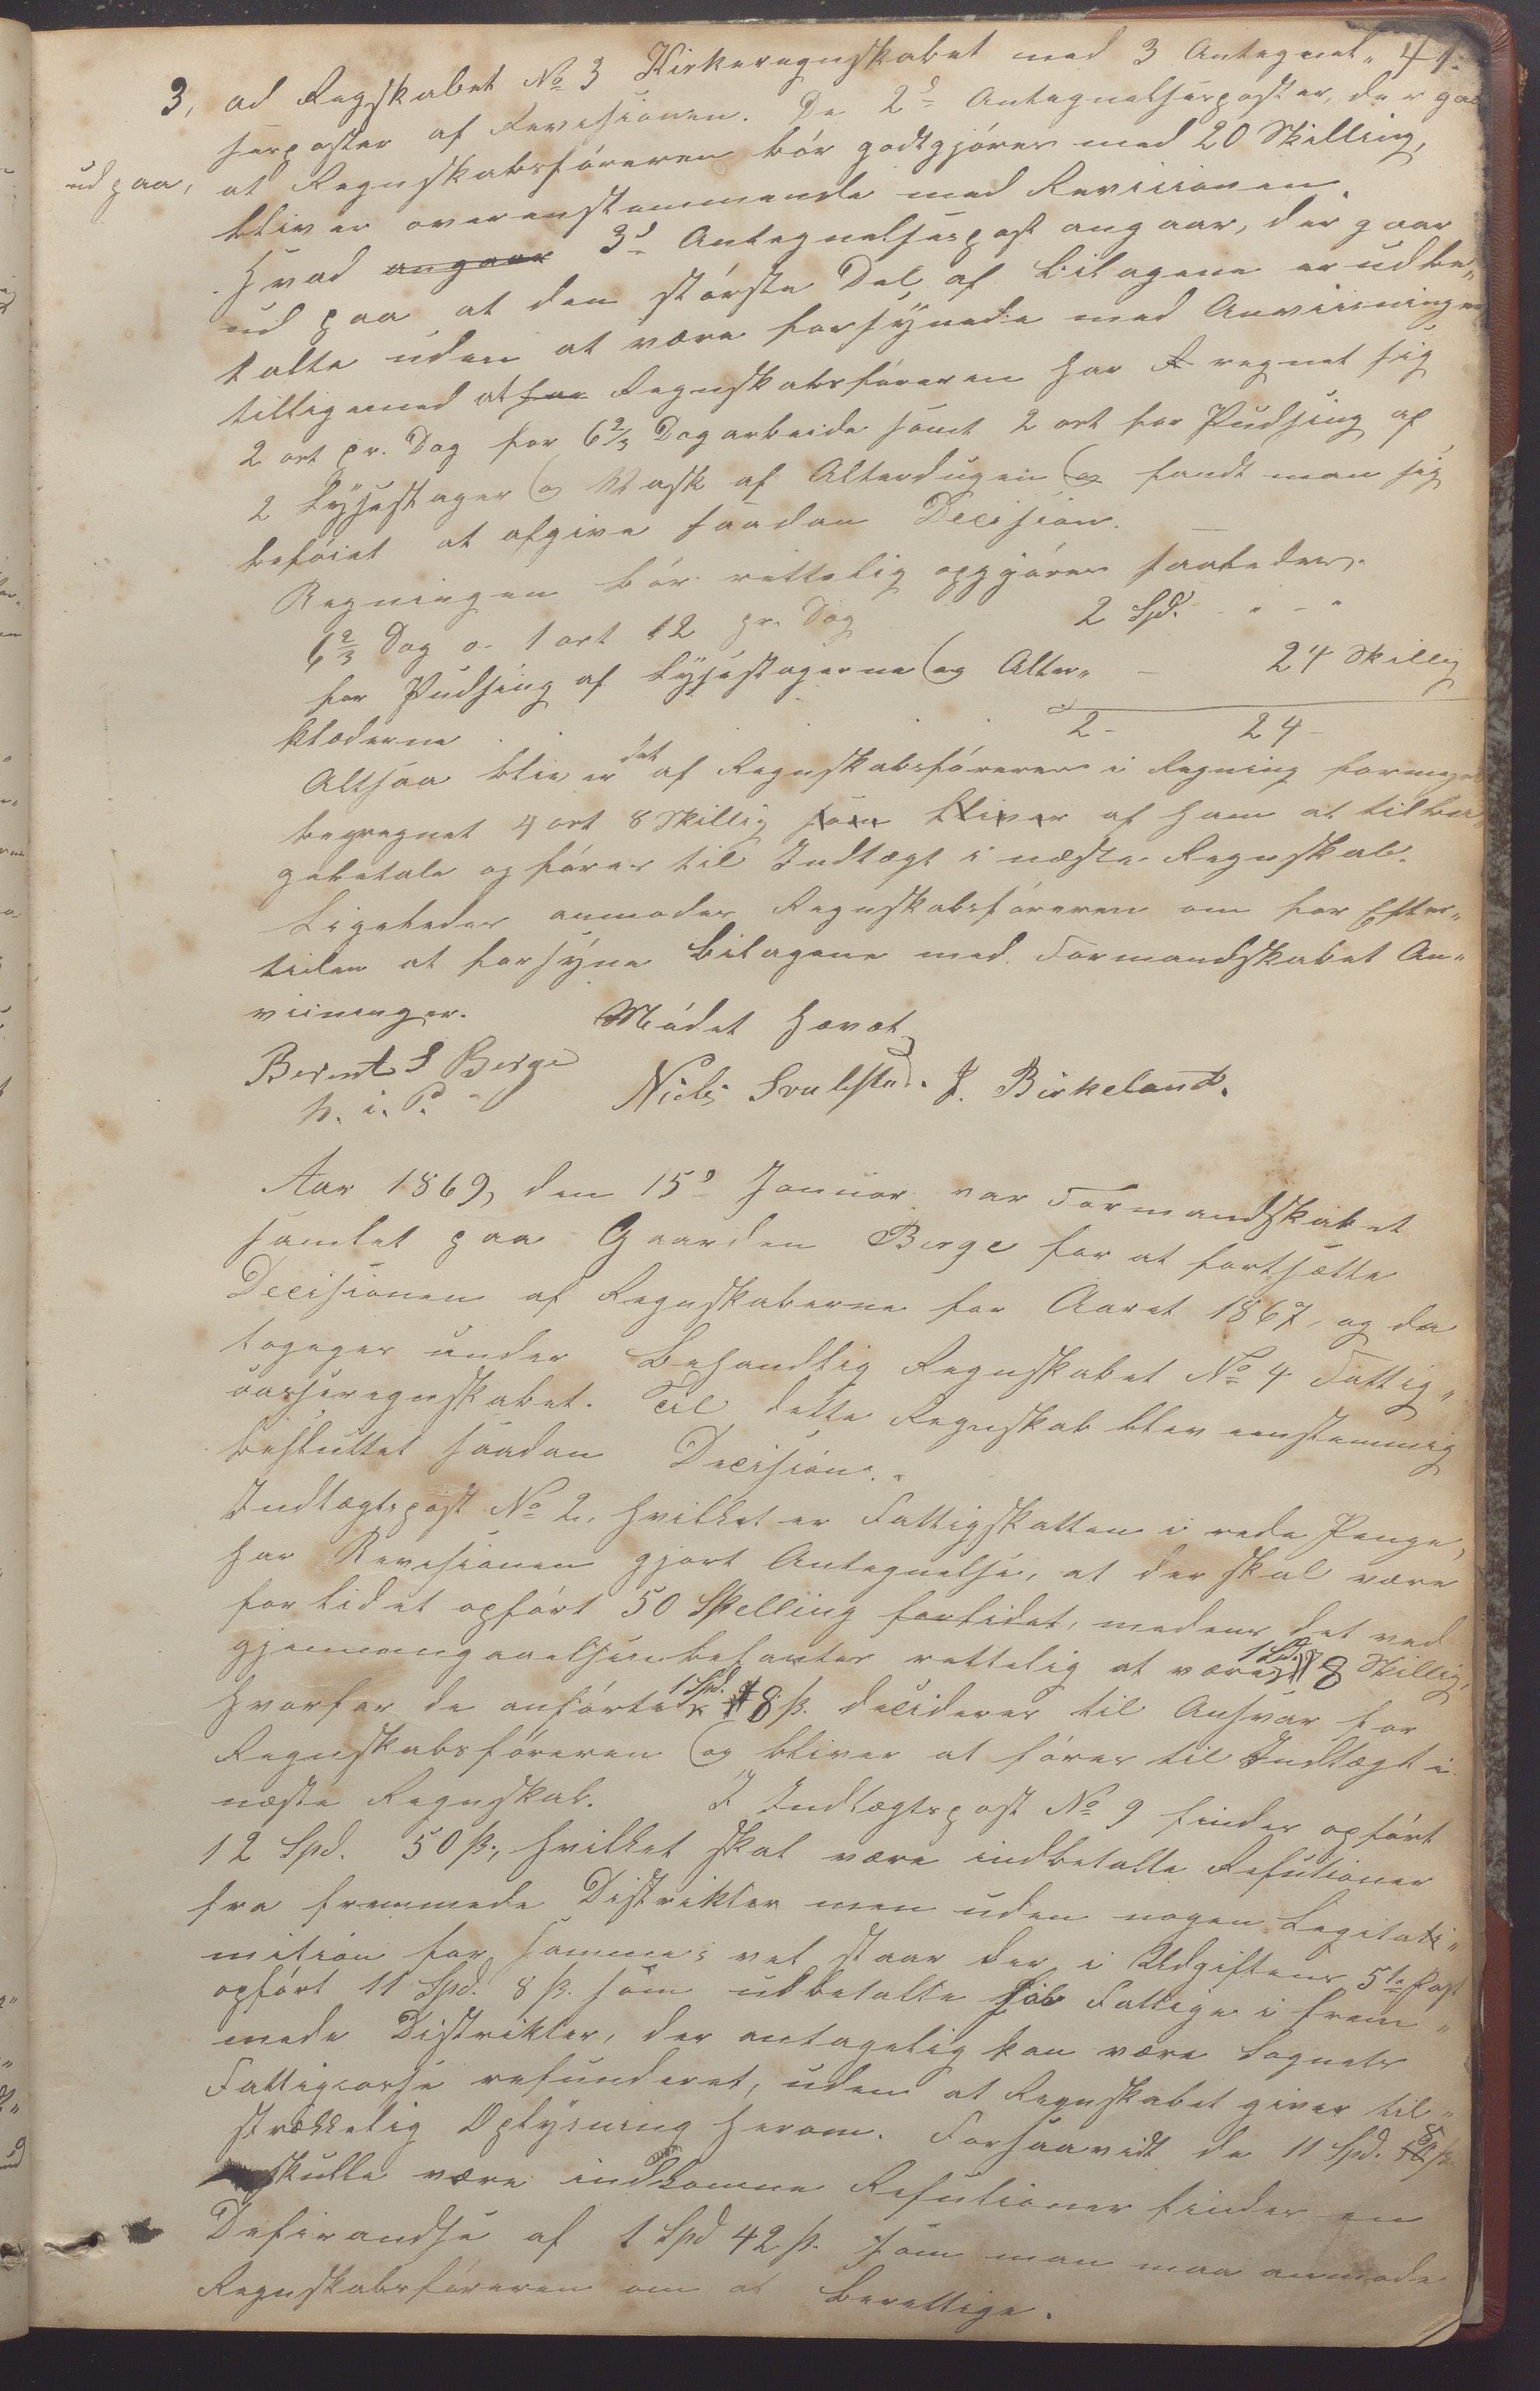 41.
3, ad Regskabet No 3 Kirkeregnskabet med 3 Antegnel„
sesposter af Revisionen. De 2d Antegnelsesposter, der gaa
ud paa, at Regnskabsføreren bør godtgjøres med 20 Skilling,
bliver overenstemmende med Revisionen.
Hvad angaar 3d Antegnelsespost angaar, der gaar
ud paa at den største Del af Bilagene er udbe„
talte uden at være forsynede med Anviisninger
tilligemed at har Regnskabsføreren har R regnet sig
2 ort pr. Dag for 6 2/3 Dagarbeide samt 2 ort for Pudsing af
2 Lysestager og Vask af Alterdugen og fandt man sig
beføiet at afgive saadan Decision.
Regningen bør rettelig opgjøres saaledes.
6 2/3 Dag a 1 ort 12 pr. Dag 2 Spd. „ - „
for Pudsing af Lysestagerne og Alter„ — 24 Skillig
klæderne 2 - 24 -
Altsaa bliver det af Regnskabsføreren i Regning formeget
beregnet 4 ort 8 Skillig som bliver af ham at tilba„
gebetale og føres til Indtægt i næste Regnskab.
Ligeledes anmodes Regnskabsføreren om for Efter„
tiden at forsyne Bilagene med Formandskabet An„
viisninger. Mødet hævet
Bernt S Berge Niels Svalestad. J. Birkeland.
h. i. P.
Aar 1869, den 15d Januar var Formandskabet
samlet paa Gaarden Berge for at fortsætte
Decisionen af Regnskaberne for Aaret 1867, og da
toges under Behandlig Regnskabet No 4 Fattig„
casseregnskabet. Til dette Regnskab blev eenstemmig
besluttet saadan Decision.
Indtægtspost No 2, hvilket er Fattigskatten i rede Penge,
har Revisionen gjort Antegnelse, at der skal være
forlidet opført 50 Skelling forlidet, medens det ved
gjennemgaaelsen befantes rettelig at være 1 Spd. 8 Skillig,
hvorfor de anførte 1 Spd. 8 ß. decideres til Ansvar for
Regnskabsføreren og bliver at føres til Indtægt i
næste Regnskab. I Indtægtspost No 9 findes opført
12 Spd. 50 ß., hvilket skal være indbetalte Refutioner
fra fremmede Distrikter men uden nogen Legitati„
mition for samme; vel staar der i Udgiftens 5te Post
opført 11 Spd. 8 ß. som udbetalte til Fattige i frem„
mede Distrikter, der antagelig kan være Sognets
Fattigcasse refunderet, uden at Regnskabet giver til„
strækkelig Oplysning herom. Forsaavidt de 11 Spd. 8 ß.
skulle være indkomne Refutioner findes en
Defirandse af 1 Spd 42 ß. som man maa anmode
Regnskabsføreren om at berettige.